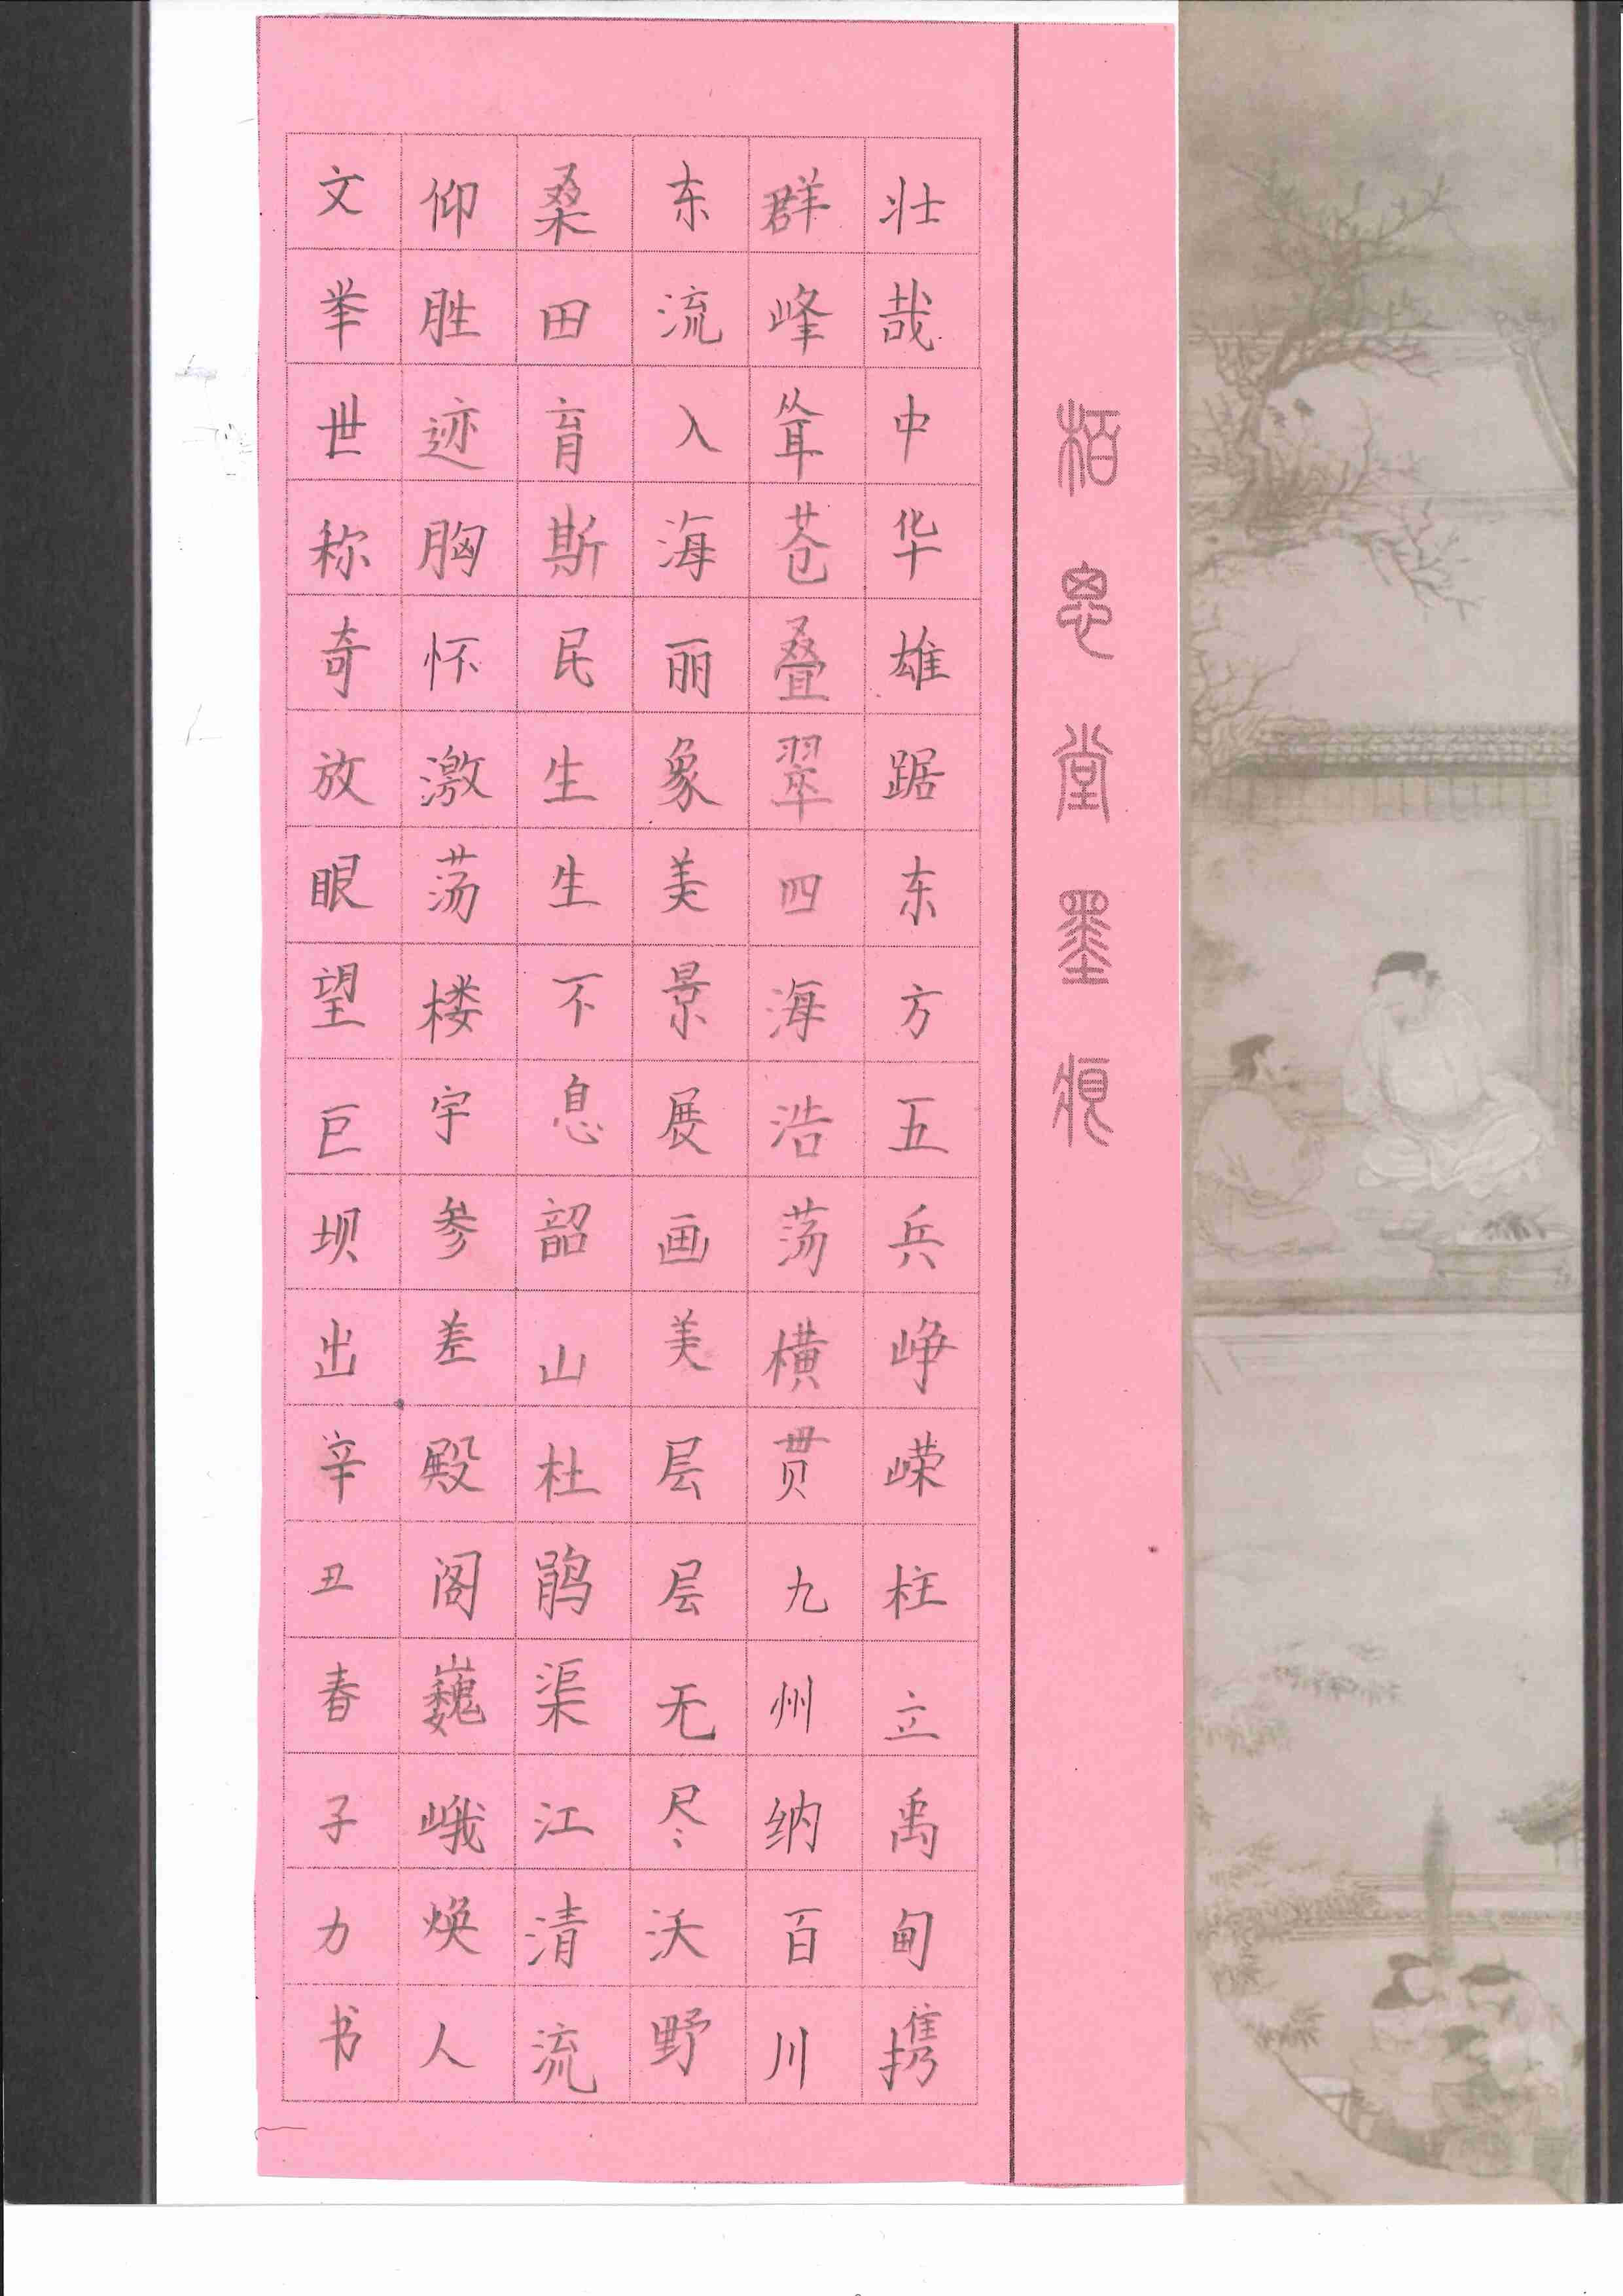 栢思堂墨痕
壮哉中华雄踞东方五兵峥嵘柱立禹甸携
群峰耸苍叠翠四海浩荡横贯九州纳百川
东流入海丽象美景展画美层层无尽沃野
桑田育斯民生生不息韶山杜鹃渠江清流
仰胜迹胸怀激荡楼宇参差殿阁巍峨焕人
文举世称奇放眼望巨坝出辛丑春子力书